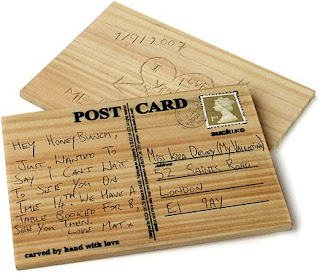 1/9/2007
I
ME
POST CARD
suckUK
HEY HONEYBUNCH,
JUST WANTED TO
SAY I CAN'T WAIT
TO SEE YOU ON
THE 14TH WE HAVE A
TABLE BOOKED FOR 8,
SEE YOU THEN.
LOVE MAT X
MISS KIRA DEWEY (MY VALENTINE)
52 SAINTS ROAD
LONDON
E1 9AY
carved by hand with love